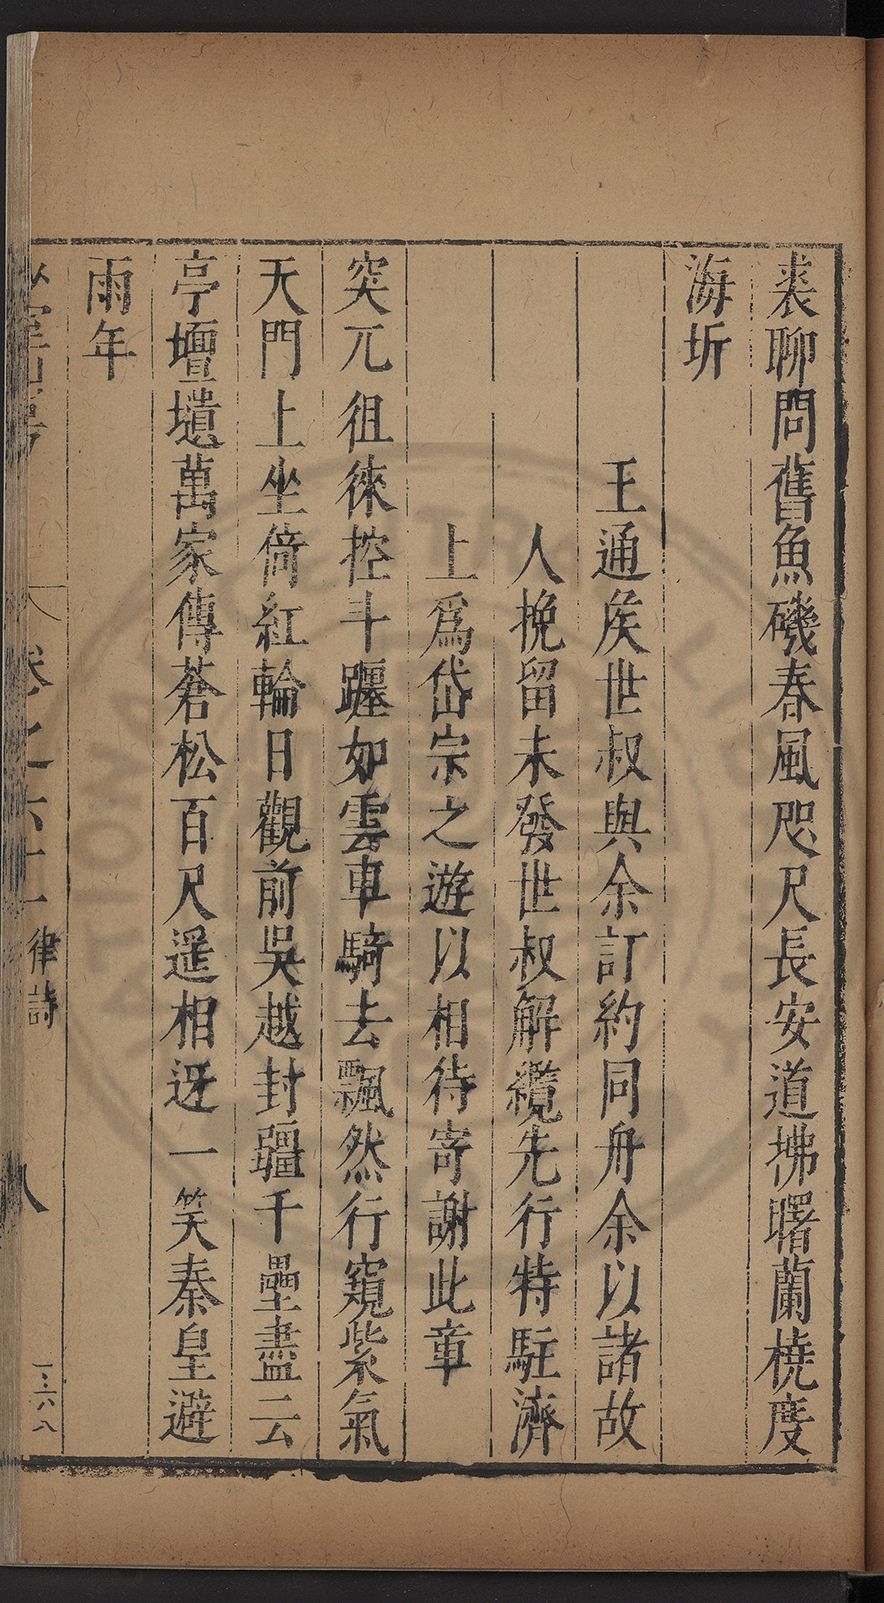 裘聊問舊魚磯春風咫尺長安道拂曙蘭橈度
海圻
王通侯世叔與余訂約同舟余以諸故
人挽留未發世叔解纜先行特駐濟
上爲岱宗之遊以相待寄謝此章
突兀徂徠控斗躔如雲車騎去飄然行窺紫氣
天門上坐倚紅輪日觀前吳越封疆千壘盡云
亭壇壝萬家傳蒼松百尺遥相迓一笑秦皇避
雨年
卷之六十一 律詩 八
一・六八